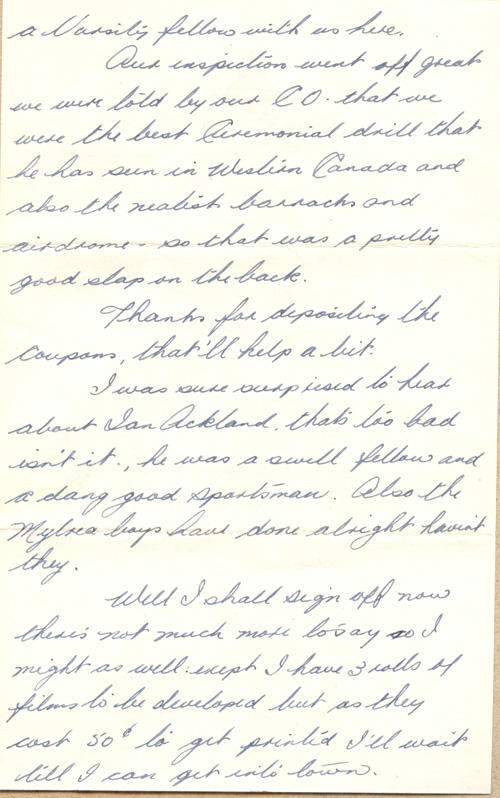 a Varsity fellow with us here.
Our inspection went off great
we were told by our C O. that we
were the best Ceremonial drill that
he has seen in Western Canada and
also the neatist barracks and
airdrome - so that was a pretty
good slap on the back.
Thanks for depositing the
coupons, that'll help a bit.
I was sure surprised to hear
about Ian Ackland, that's too bad
isn't it., he was a swell fellow and
a dang good sportsman. Also the
Mylrea boys have done alright havint
they.
Well I shall sign off now
there's not much more to say so I
might as well: exept I have 3 rolls of
films to be developed but as they
cost 50¢ to get printed I'll wait
till I can get into town.